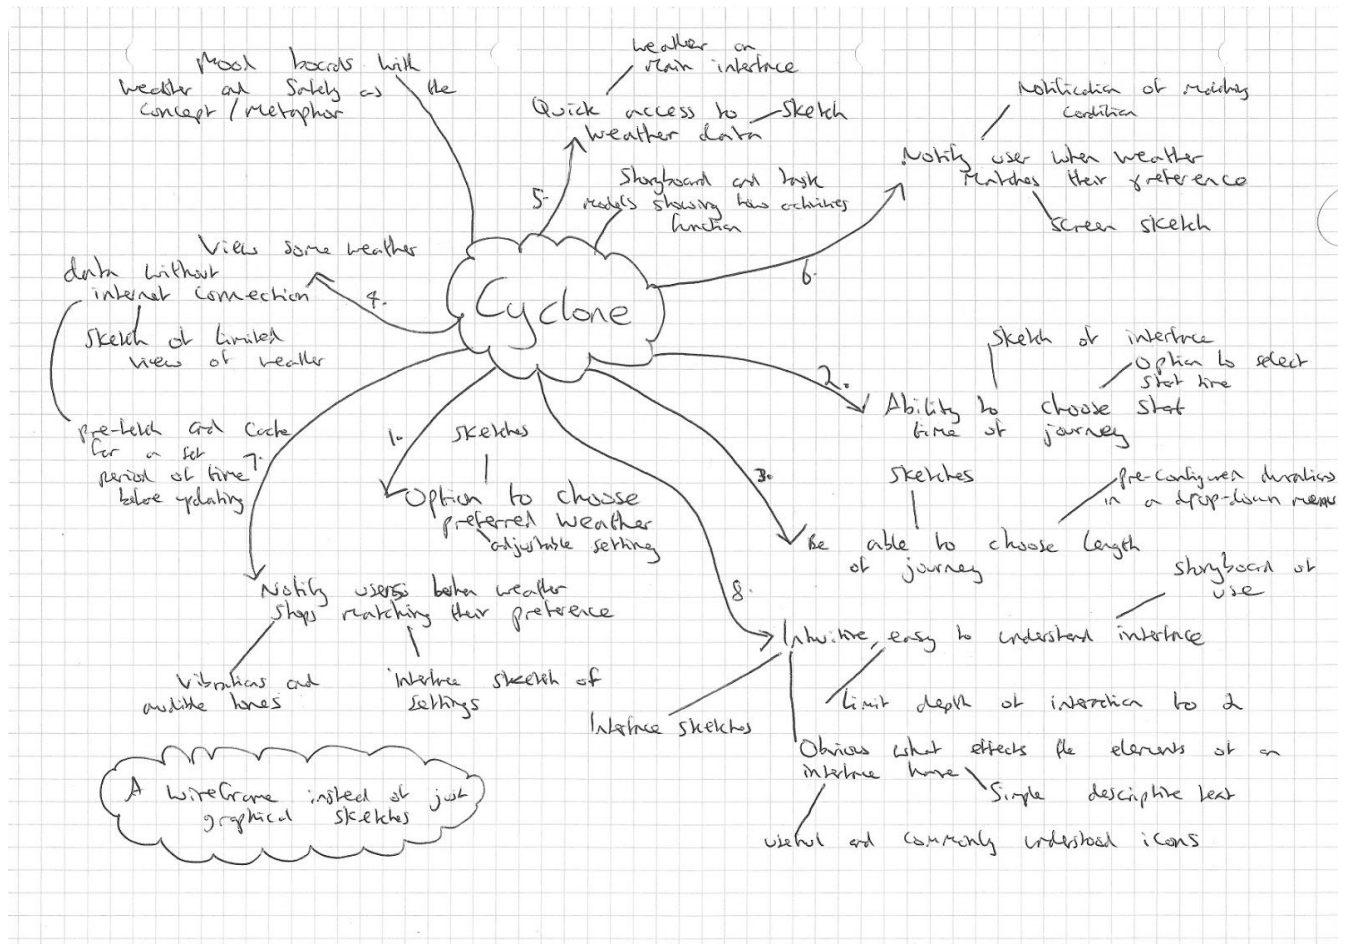 Mood boards with
weather and safety as the
concept / metaphor
weather on
main interface
Quick access to
weather data
sketch
5.
Storyboard and task
models showing how activities
function
Notification of matching
condition
Notify user when weather
matches their preference
screen sketch
6.
View some weather
data without
internet connection
4.
sketch of limited
view of weather
pre-fetch and cache
for a set
period of time
before updating
Cyclone
2.
sketch of interface
option to select
start time
Ability to choose start
time of journey
1.
sketches
Option to choose
preferred weather
adjustable setting
3.
sketches
pre-configured durations
in a drop-down menu
Be able to choose length
of journey
7.
Notify users when weather
stops matching their preference
Vibrations and
audible tones
interface sketch of
settings
8.
storyboard of
use
Intuitive, easy to understand interface
Interface sketches
Limit depth of interaction to 2
Obvious what effects the elements of an
interface have
Simple descriptive text
useful and commonly understood icons
A wireframe instead of just
graphical sketches